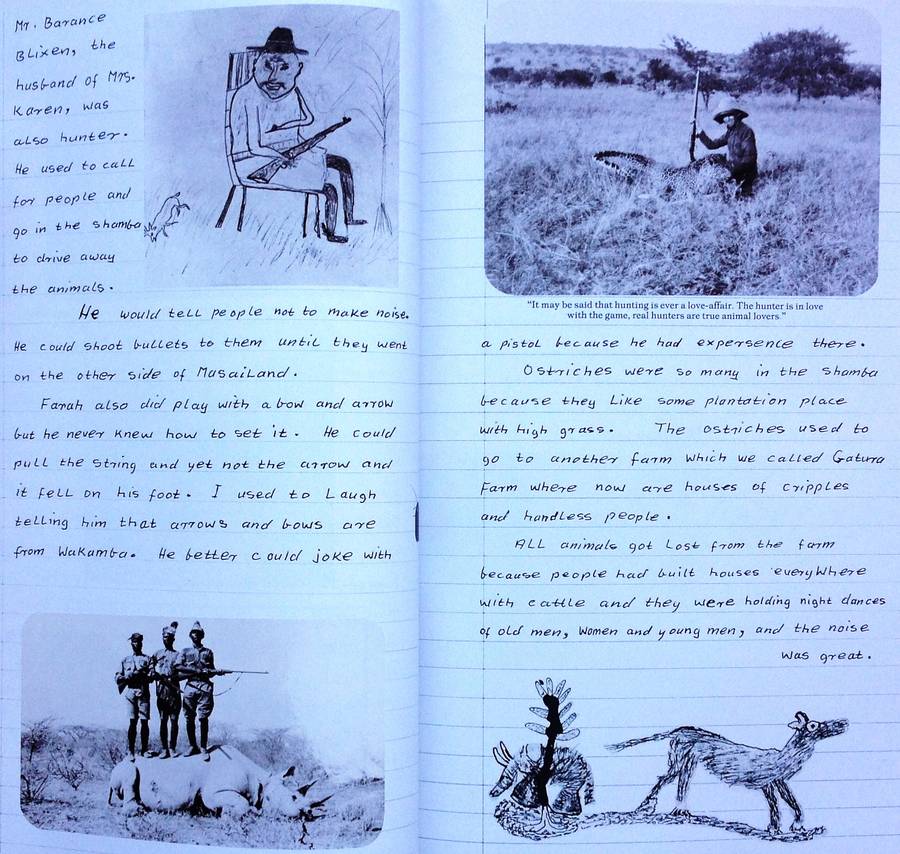 Mr. Barance
Blixen, the
husband of Mrs.
Karen, was
also hunter.
He used to call
for people and
go in the shamba
to drive away
the animals.
He would tell people not to make noise.
He could shoot bullets to them until they went
on the other side of Masailand.
Farah also did play with a bow and arrow
but he never knew how to set it. He could
pull the string and yet not the arrow and
it fell on his foot. I used to Laugh
telling him that arrows and bows are
from Wakamba. He better could joke with
"It may be said that hunting is ever a love-affair. The hunter is in love
with the game, real hunters are true animal lovers."
a pistol because he had expersence there.
Ostriches were so many in the shamba
because they Like some plantation place
with high grass. The ostriches used to
go to another farm which we called Gatura
Farm where now are houses of cripples
and handless people.
ALL animals got Lost from the farm
because people had built houses everyWhere
with cattle and they were holding night dances
of old men, Women and young men, and the noise
was great.